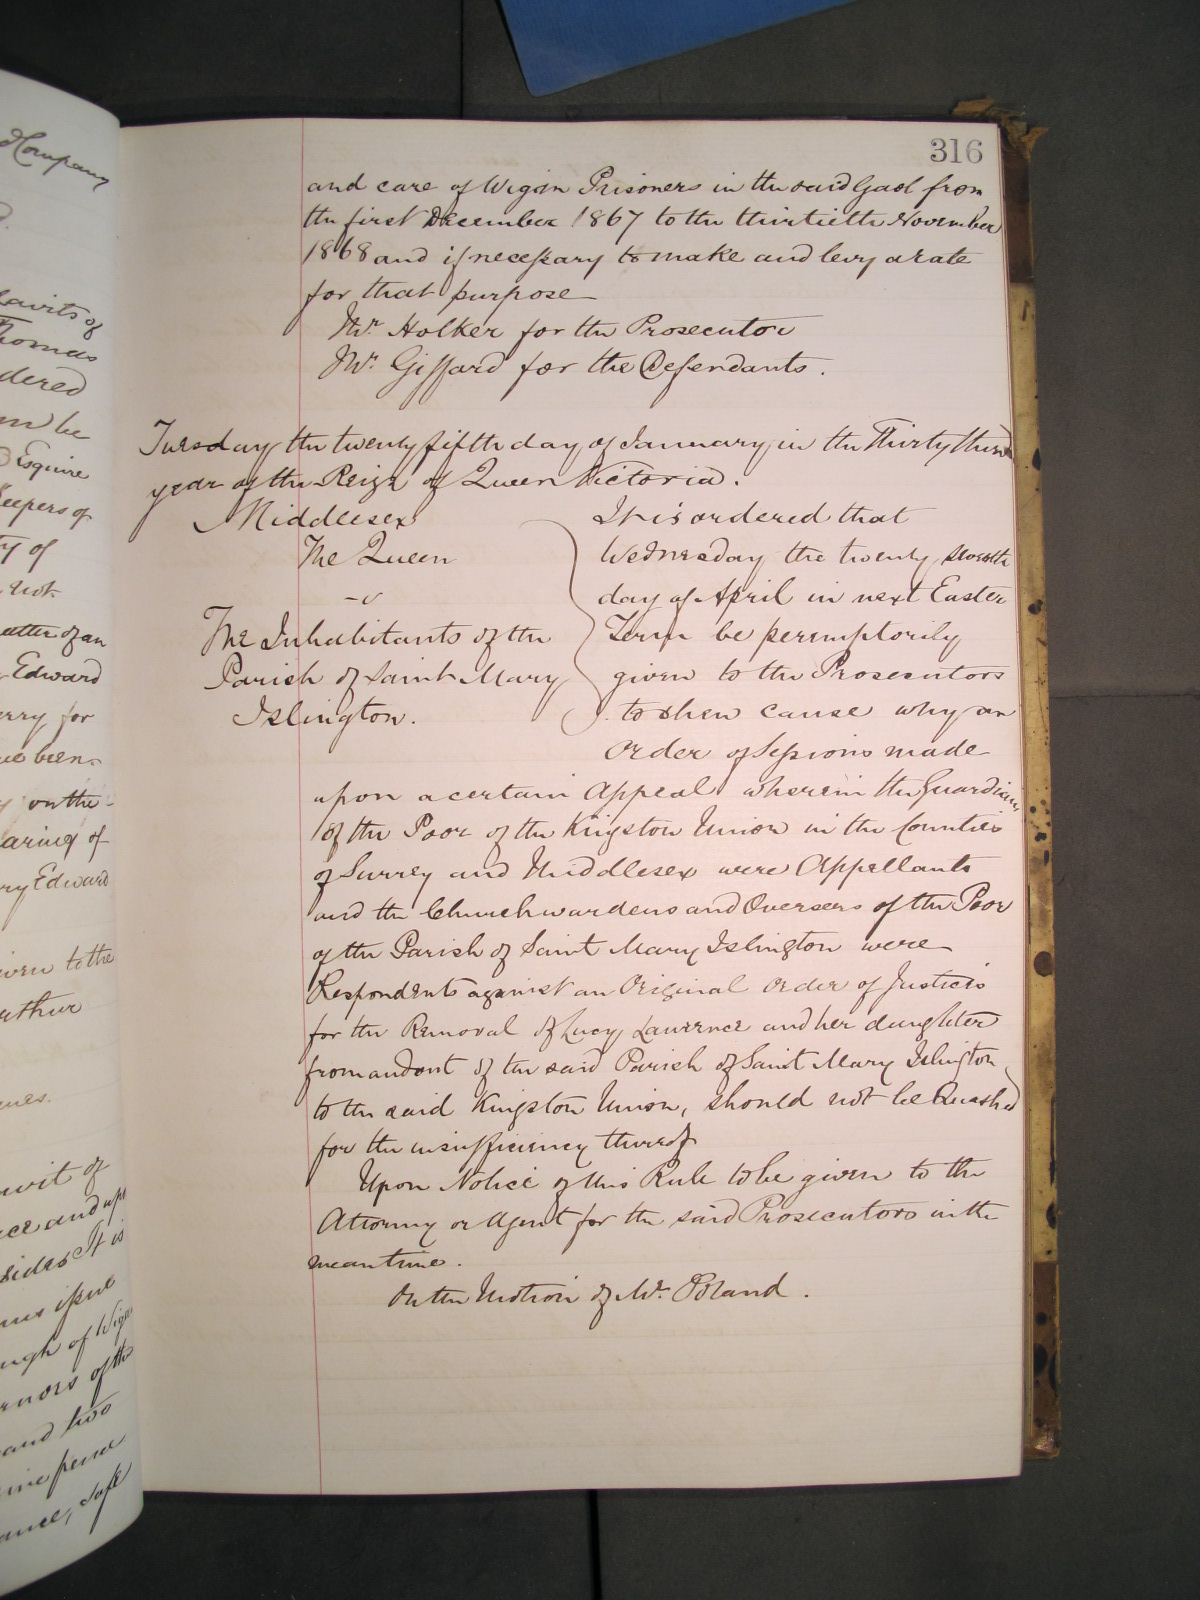 316
and care of Wigan Prisoners in the said Gaol from
the first December 1867 to the thirtieth November
1868 and if necessary to make and levy a rate
for that purpose
Mr. Holker for the Prosecutor
Mr. Giffard for the Defendants.
Tuesday the twenty fifth day of January in the Thirty third
year of the Reign of Queen Victoria.
Middlesex
The Queen
v
The Inhabitants of the
Parish of Saint Mary
Islington.
It is ordered that
Wednesday the twenty seventh
day of April in next Easter
Term be peremptorily
given to the Prosecutors
to shew cause why an
Order of Sessions made
upon a certain Appeal wherein the Guardians
of the Poor of the Kingston Union in the Counties
of Surrey and Middlesex were Appellants
and the Churchwardens and Overseers of the Poor
of the Parish of Saint Mary Islington were
Respondents against an Original Order of Justices
for the Removal of Lucy Lawrence and her daughter
from and out of the said Parish of Saint Mary Islington
to the said Kingston Union, should not be Quashed
for the insufficiency thereof
Upon Notice of this Rule to be given to the
Attorney or Agent for the said Prosecutors in the
meantime.
On the Motion of Mr. Poland.
Company
davits of
Thomas
dered
be
Esquire
Keepers of
of
not
matter of an
Edward
for
been
on the
earing of
Edward
given to the
Arthur
of
and upon
sides It is
issue
of Wigan
of the
and two
safe